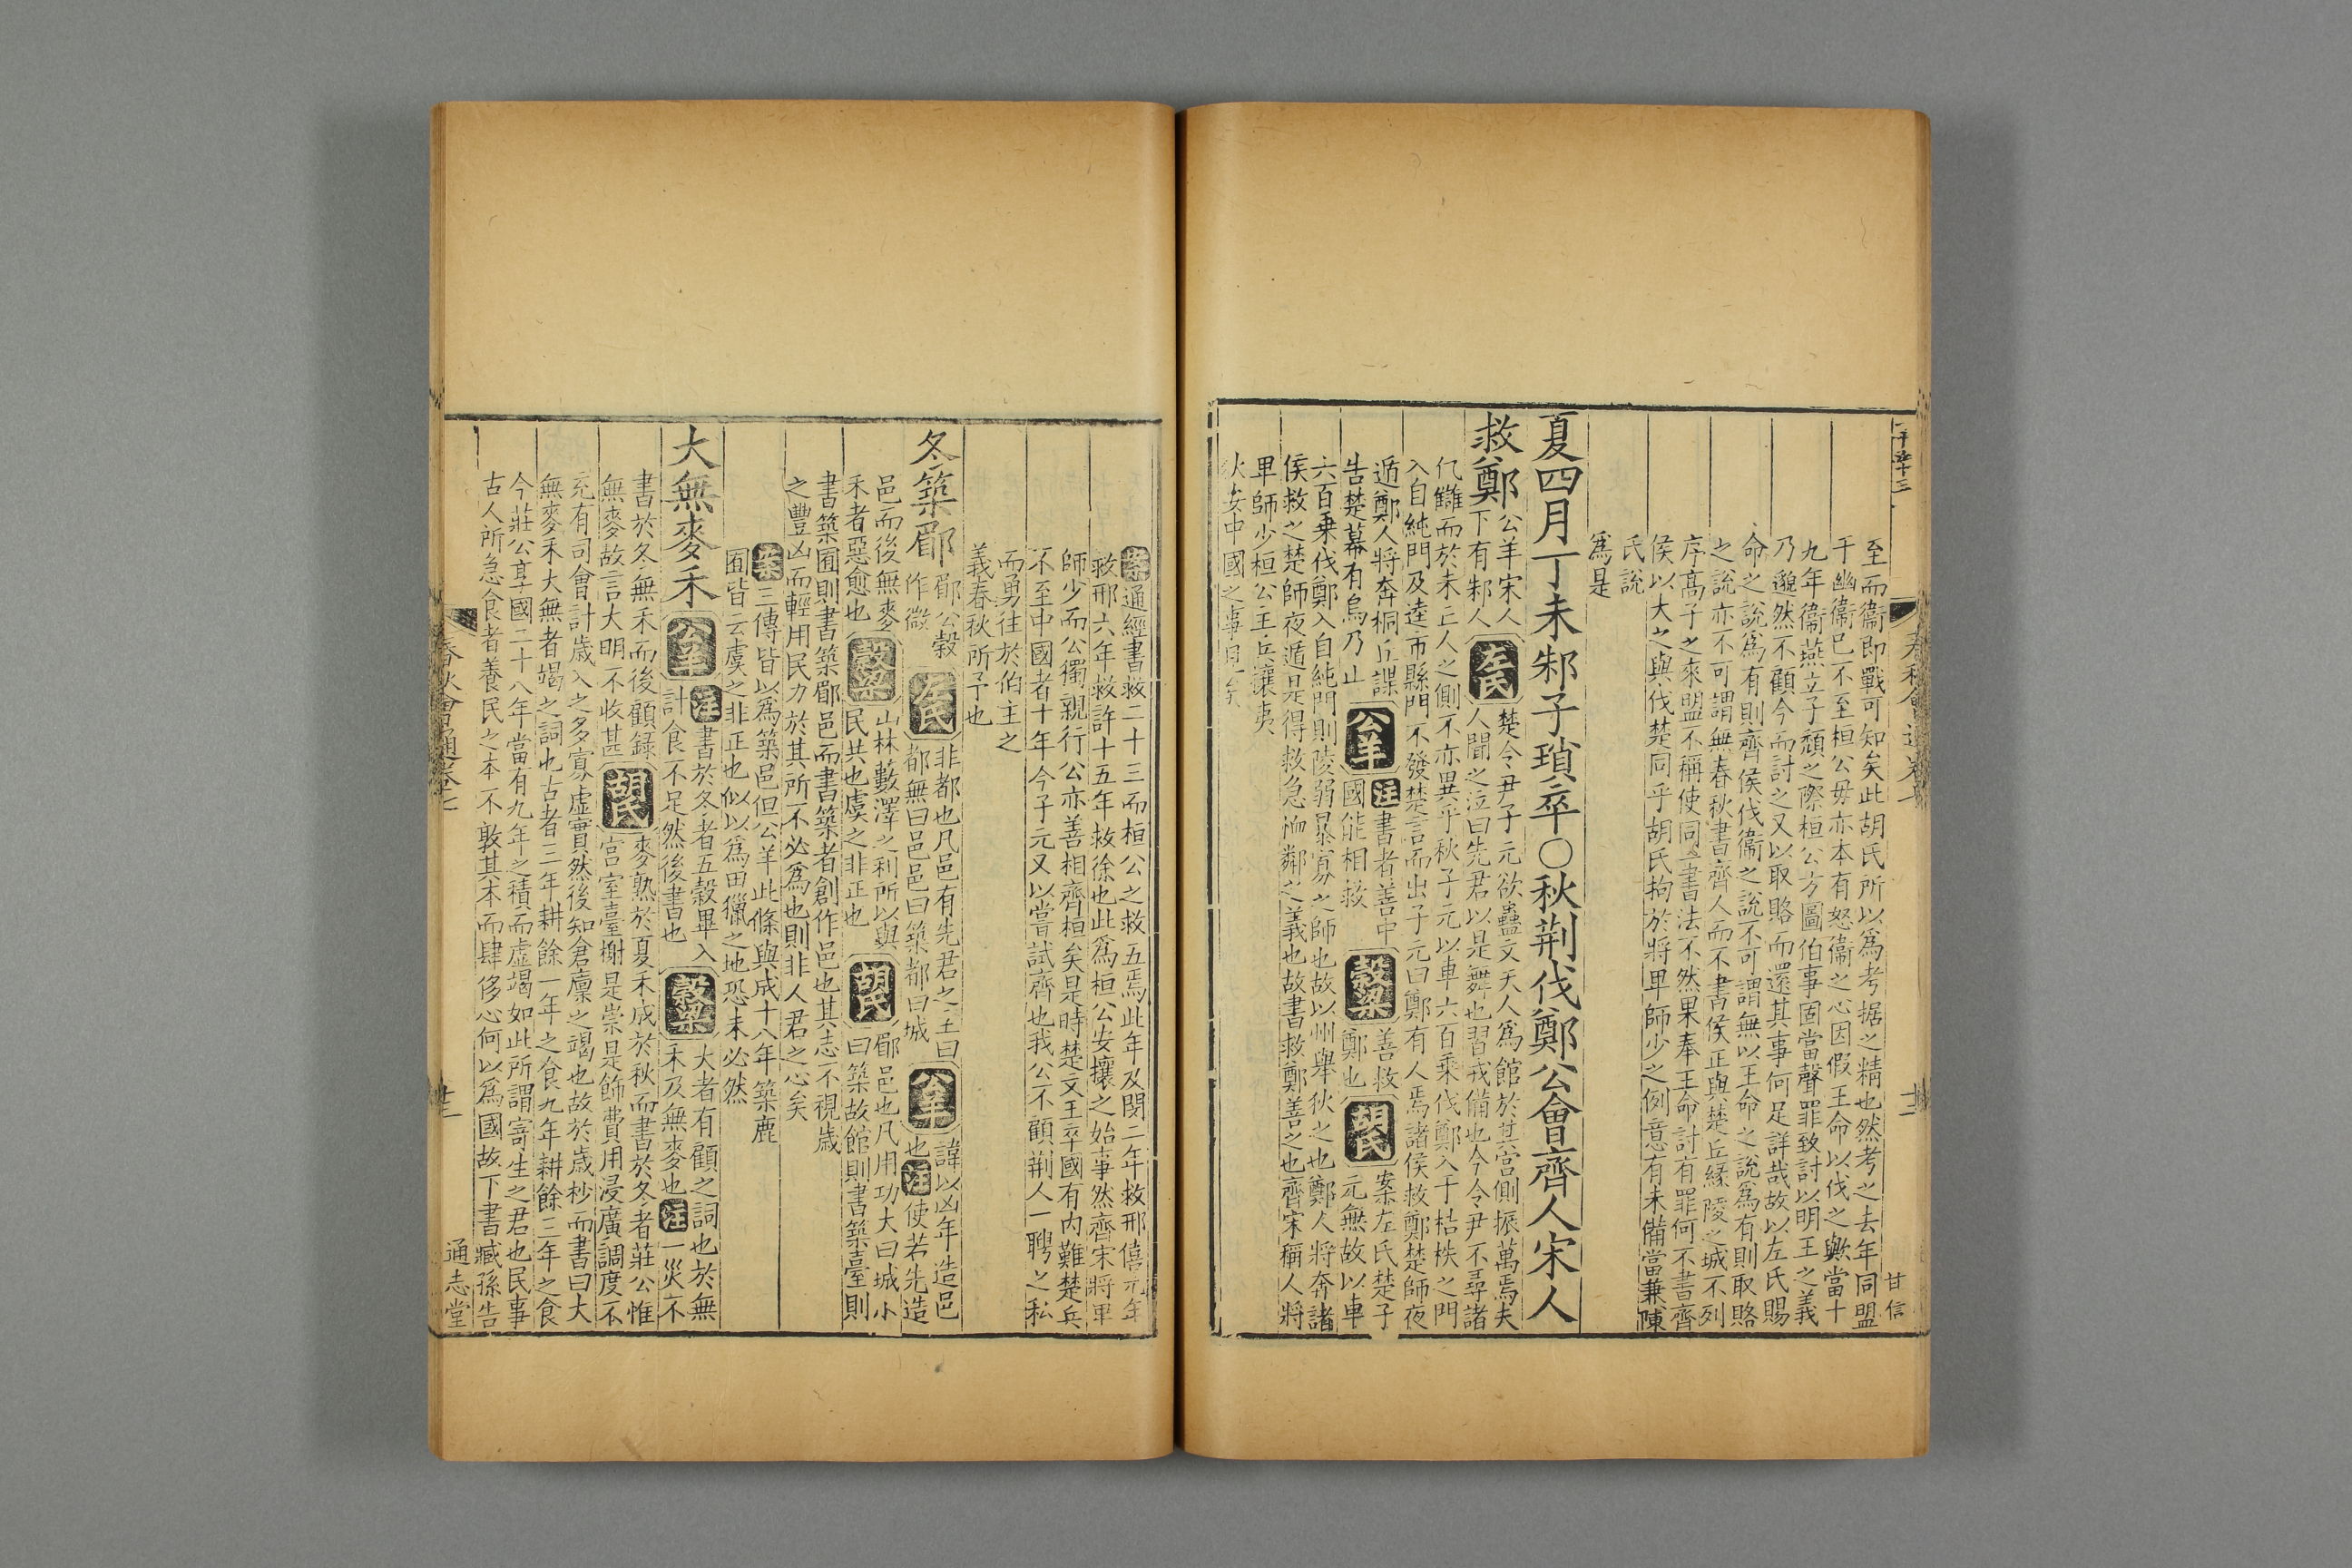 至而衞即戰可知矣此胡氏所以爲考据之精也然考之去年同盟
于幽衞已不至桓公毋亦本有怒衞之心因假王命以伐之歟當十
九年衞燕立子頽之際桓公方圖伯事固當聲罪致討以明王之義
乃邈然不顧今而討之又以取賂而還其事何足詳哉故以左氏賜
命之說爲有則齊侯伐衞之說不可謂無以王命之說爲有則取賂
之說亦不可謂無春秋書齊人而不書侯正與楚丘緣陵之城不列
序高子之來盟不稱使同一書法不然果奉王命討有罪何不書齊
侯以大之與伐楚同乎胡氏拘於將卑師少之例意有未備當兼陳
氏說
爲是
夏四月丁未邾子瑣卒○秋荆伐鄭公會齊人宋人
救鄭
公羊宋人
下有邾人
左氏
楚令尹子元欲蠱文夫人爲館於其宮側振萬焉夫
人聞之泣曰先君以是舞也習戎備也今令尹不尋諸
仇讎而於未亡人之側不亦異乎秋子元以車六百乘伐鄭入于桔柣之門
入自純門及逵市縣門不發楚言而出子元曰鄭有人焉諸侯救鄭楚師夜
遁鄭人將奔桐丘諜
告楚幕有烏乃止
公羊
注書者善中
國能相救
穀梁
善救
鄭也
胡氏
案左氏楚子
元無故以車
六百乗伐鄭入自純門則陵弱暴寡之師也故以州舉狄之也鄭人將奔諸
侯救之楚師夜遁是得救急恤鄰之義也故書救鄭善之也齊宋稱人將
卑師少桓公主兵攘夷
狄安中國之事見矣
案通經書救二十三而桓公之救五焉此年及閔二年救邢僖元年
救邢六年救許十五年救徐也此爲桓公安攘之始事然齊宋將卑
師少而公獨親行公亦善相齊桓矣是時楚文王卒國有内難楚兵
不至中國者十年今子元又以嘗試齊也我公不顧荆人一聘之私
而勇往於伯主之
義春秋所予也
冬築郿
郿公穀
作微
左氏
非都也凡邑有先君之主曰
都無曰邑邑曰築都曰城
公羊
諱以凶年造邑
也注使若先造
邑而後無麥
禾者惡愈也
穀梁
山林藪澤之利所以與
民共也虞之非正也
胡氏
郿邑也凡用功大曰城小
曰築故館則書築臺則
書築囿則書築郿邑而書築者創作邑也其志不視歲
之豐凶而輕用民力於其所不必爲也則非人君之心矣
案三傳皆以爲築邑但公羊此條與成十八年築鹿
囿皆云虞之非正也似以爲田獵之地恐未必然
大無麥禾
公羊
注書於冬者五穀畢入
計食不足然後書也
穀梁
大者有顧之詞也於無
禾及無麥也注一災不
書於冬無禾而後顧録
無麥故言大明不收甚
胡氏
麥熟於夏禾成於秋而書於冬者莊公惟
宮室臺榭是崇是飾費用浸廣調度不
充有司會計歲入之多寡虚實然後知倉廪之竭也故於歲杪而書曰大
無麥禾大無者竭之詞也古者三年耕餘一年之食九年耕餘三年之食
今莊公享國二十八年當有九年之積而虚竭如此所謂寄生之君也民事
古人所急食者養民之本不敦其本而肆侈心何以爲國故下書臧孫告
甘信
通志堂